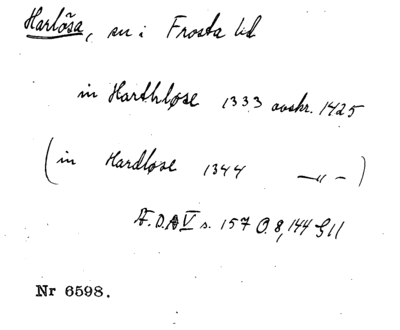 Harlösa, sn i Frosta hd
in Harthløse 1333 avskr. 1425
(in Hardløse 1344 —„—)
Æ.D.A V s. 157 O. 8, 144 G 11
Nr 6598.